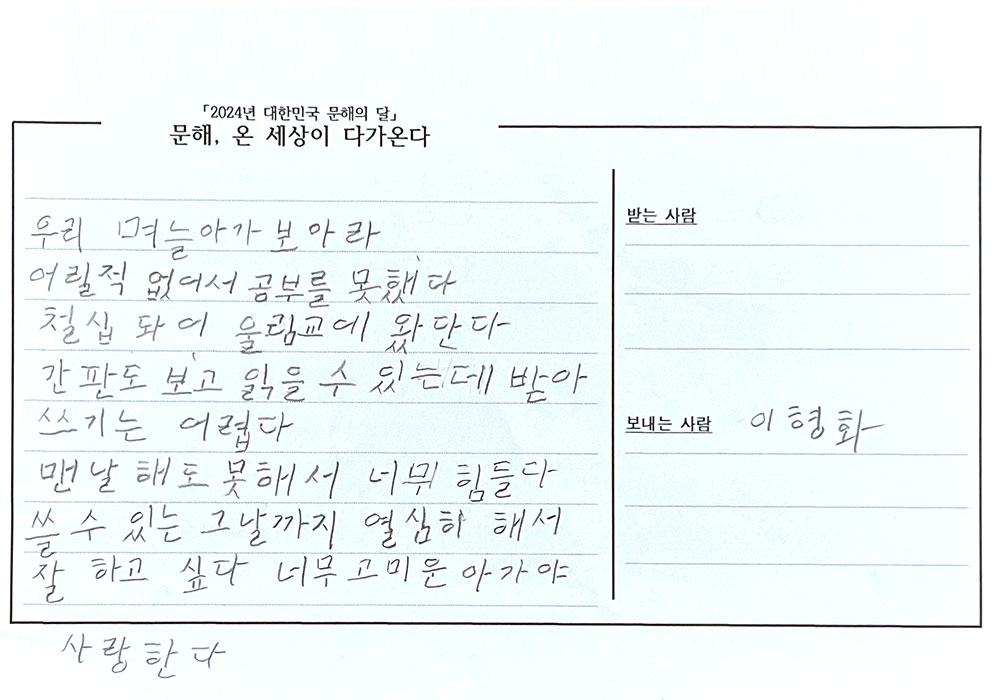 「2024년 대한민국 문해의 달」
문해, 온 세상이 다가온다
우리 며늘아가 보아라
어릴적 없어서 공부를 못했다
칠십 돠어 울림교에 왔단다
간판도 보고 읽을 수 있는데 받아
쓰기는 어렵다
맨날 해도 못해서 너뮈 힘들다
쓸 수 있는 그날까지 열심하 해서
잘 하고 싶다 너무 고미운 아가야
사랑한다
받는 사람
보내는 사람 이형화